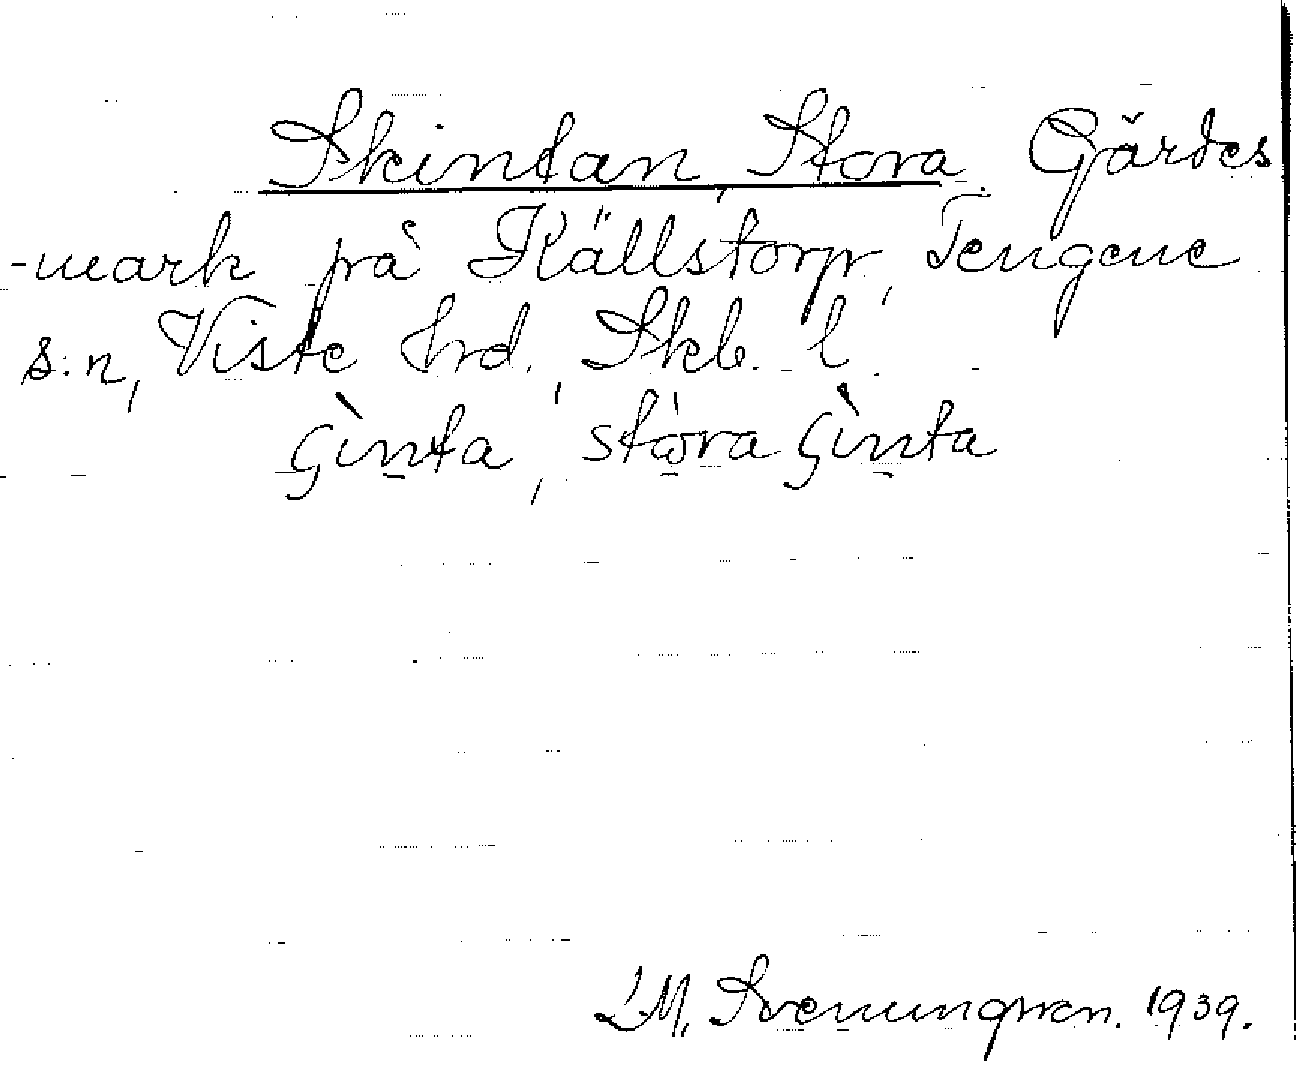 Skintan, Stora. Gärdes
-mark på Källstorp, Tengene
s:n, Viste hrd., Skb. l.
ɕìn̠ta, stò̠ra ɕìn̠ta
LM. Svenungsson. 1939.